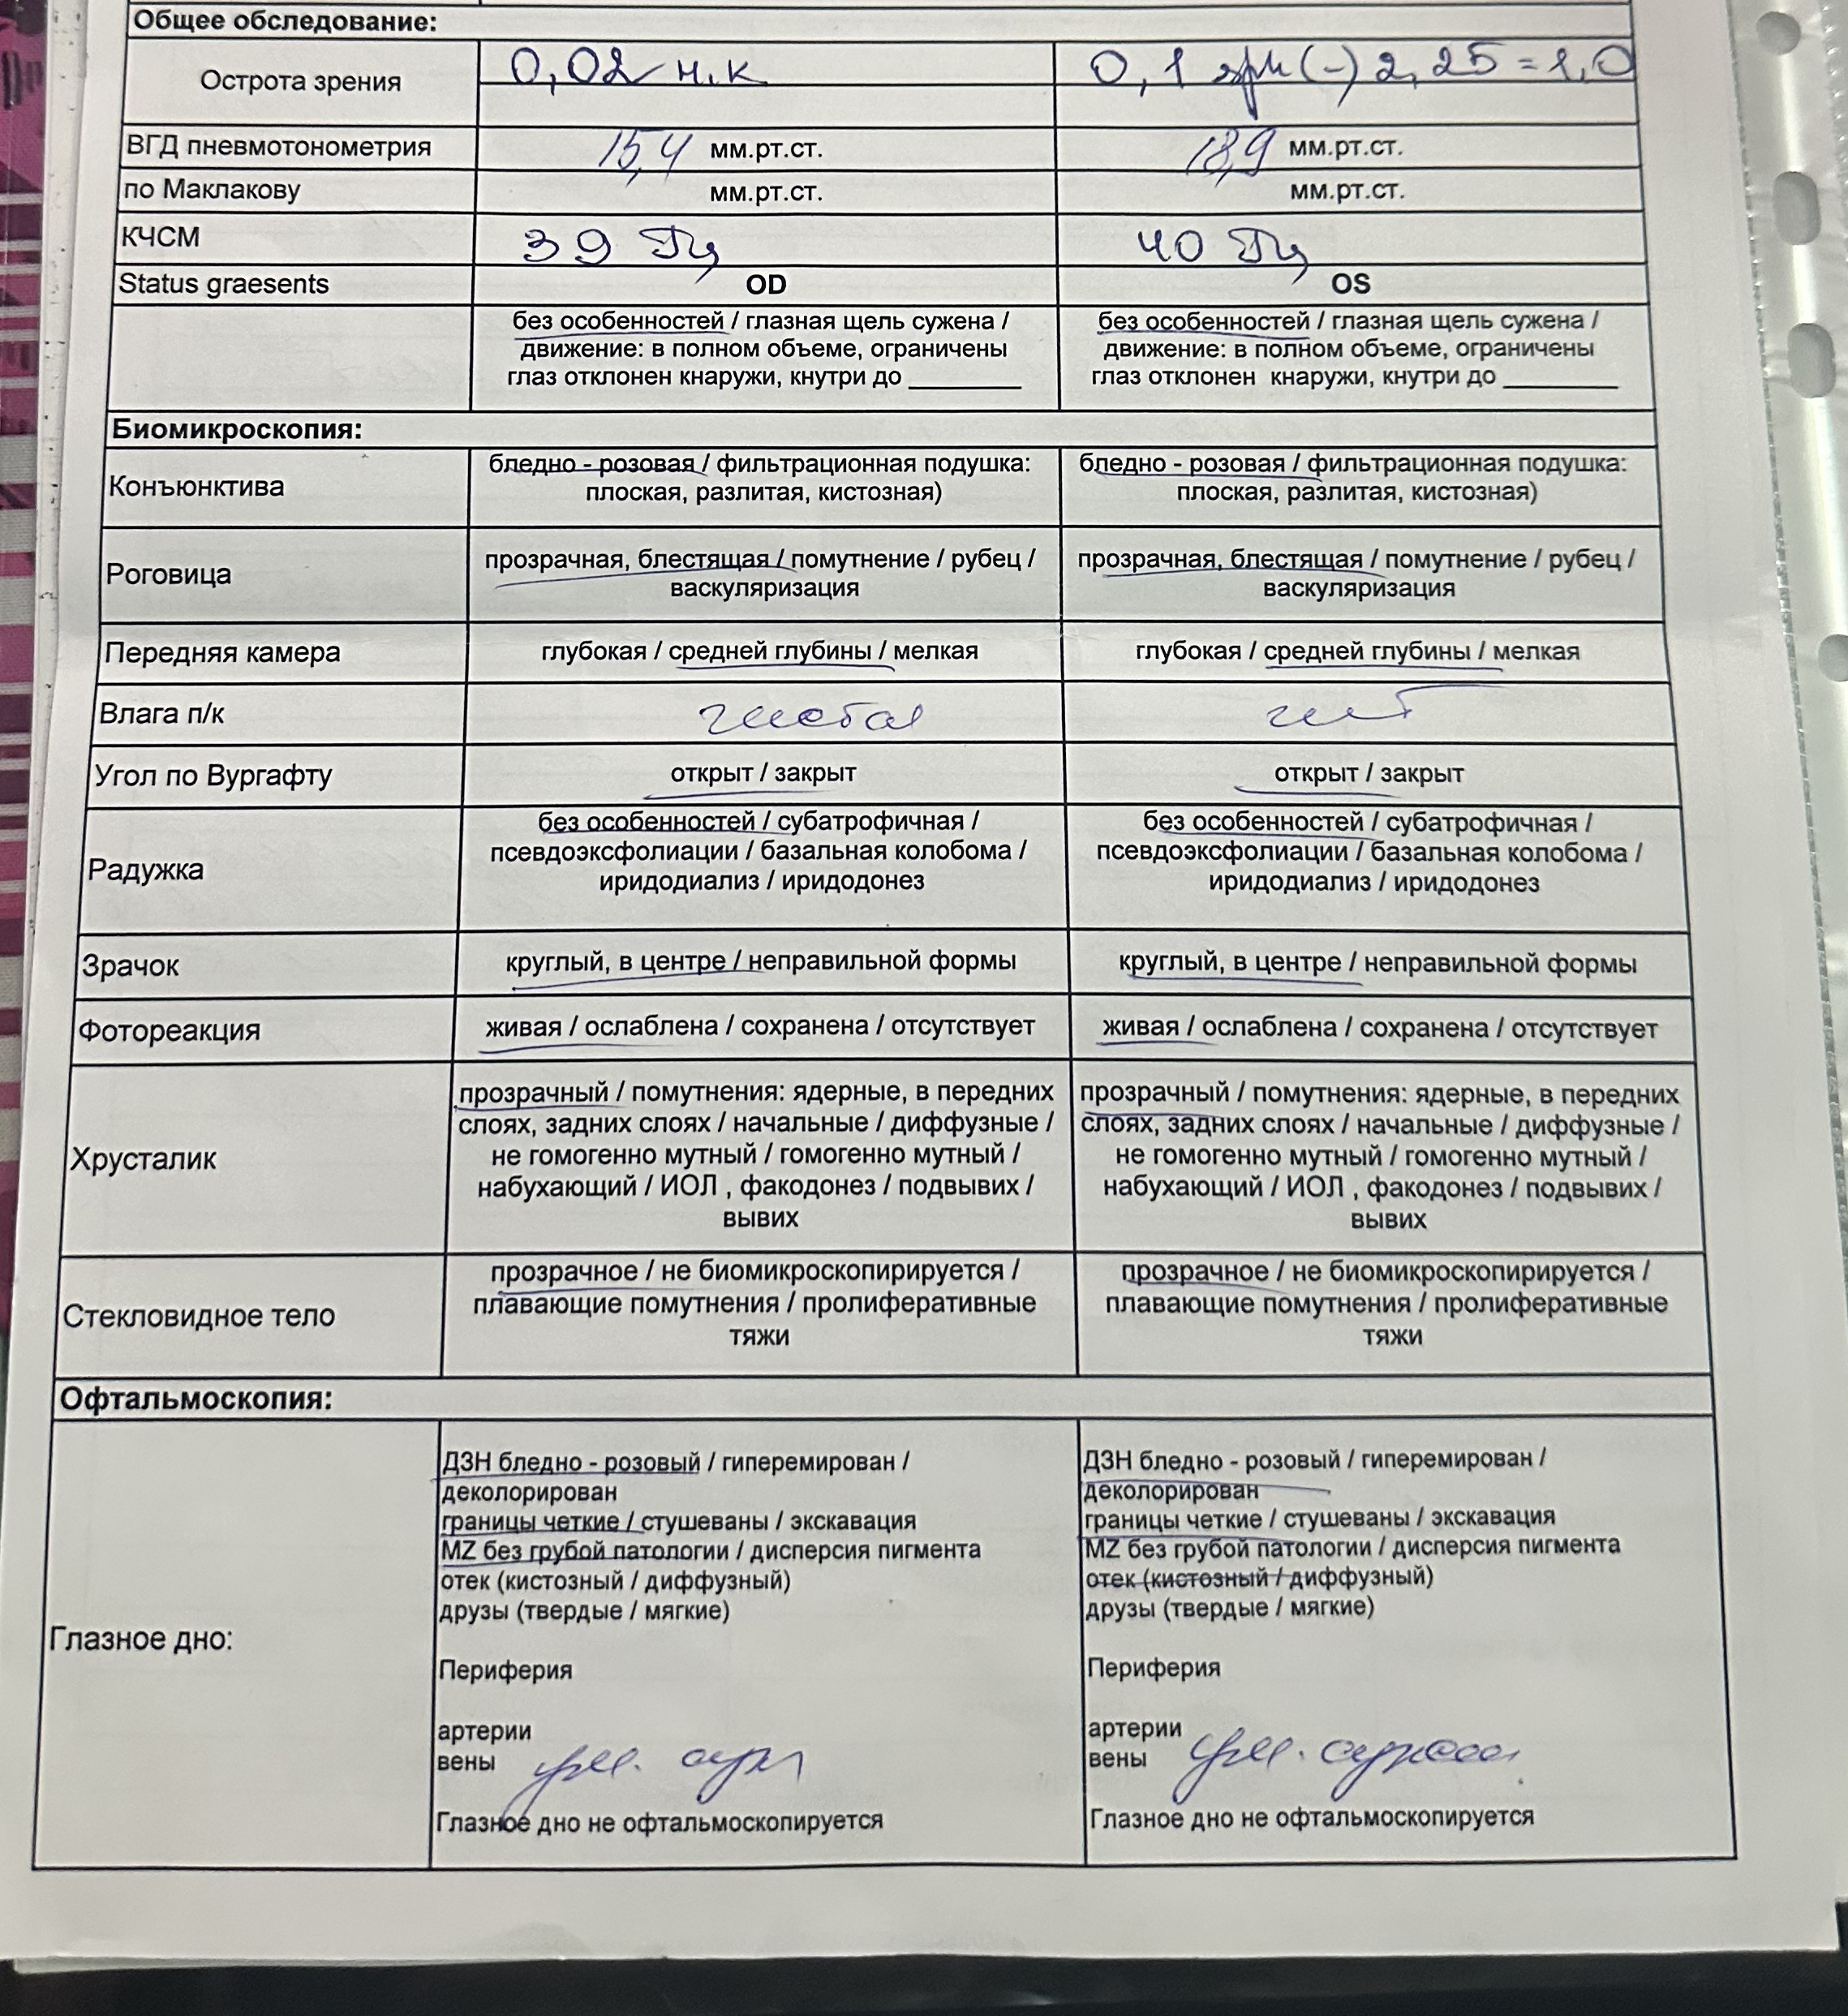 Общее обследование:
Острота зрения
0,02 н.к
0,1 sph (-) 2,25 = 1,0
ВГД пневмотонометрия
15,4 мм.рт.ст.
18,9 мм.рт.ст.
по Маклакову
мм.рт.ст.
мм.рт.ст.
КЧСМ
39 Гц
40 Гц
Status graesents
OD
OS
без особенностей / глазная щель сужена /
движение: в полном объеме, ограничены
глаз отклонен кнаружи, кнутри до ________
без особенностей / глазная щель сужена /
движение: в полном объеме, ограничены
глаз отклонен кнаружи, кнутри до ________
Биомикроскопия:
Конъюнктива
бледно - розовая / фильтрационная подушка:
плоская, разлитая, кистозная)
бледно - розовая / фильтрационная подушка:
плоская, разлитая, кистозная)
Роговица
прозрачная, блестящая / помутнение / рубец /
васкуляризация
прозрачная, блестящая / помутнение / рубец /
васкуляризация
Передняя камера
глубокая / средней глубины / мелкая
глубокая / средней глубины / мелкая
Влага п/к
чистая
Угол по Вургафту
открыт / закрыт
открыт / закрыт
Радужка
без особенностей / субатрофичная /
псевдоэксфолиации / базальная колобома /
иридодиализ / иридодонез
без особенностей / субатрофичная /
псевдоэксфолиации / базальная колобома /
иридодиализ / иридодонез
Зрачок
круглый, в центре / неправильной формы
круглый, в центре / неправильной формы
Фотореакция
живая / ослаблена / сохранена / отсутствует
живая / ослаблена / сохранена / отсутствует
Хрусталик
прозрачный / помутнения: ядерные, в передних
слоях, задних слоях / начальные / диффузные /
не гомогенно мутный / гомогенно мутный /
набухающий / ИОЛ , факодонез / подвывих /
вывих
прозрачный / помутнения: ядерные, в передних
слоях, задних слоях / начальные / диффузные /
не гомогенно мутный / гомогенно мутный /
набухающий / ИОЛ , факодонез / подвывих /
вывих
Стекловидное тело
прозрачное / не биомикроскопирируется /
плавающие помутнения / пролиферативные
тяжи
прозрачное / не биомикроскопирируется /
плавающие помутнения / пролиферативные
тяжи
Офтальмоскопия:
Глазное дно:
ДЗН бледно - розовый / гиперемирован /
деколорирован
границы четкие / стушеваны / экскавация
MZ без грубой патологии / дисперсия пигмента
отек (кистозный / диффузный)
друзы (твердые / мягкие)
Периферия
артерии
вены ум. суж
Глазное дно не офтальмоскопируется
ДЗН бледно - розовый / гиперемирован /
деколорирован
границы четкие / стушеваны / экскавация
MZ без грубой патологии / дисперсия пигмента
отек (кистозный / диффузный)
друзы (твердые / мягкие)
Периферия
артерии
вены ум. сужены
Глазное дно не офтальмоскопируется